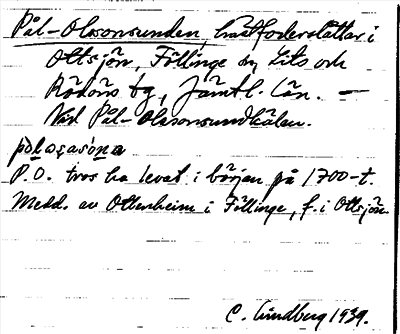 Pål-Olssonsunden, hästfoderslåttar i
Ottsjön, Föllinge sn, Lits och
Rödöns tg, Jämtl. län. —
Vid Pål-Olssonsundhälen.
P.O. tros ha levat i början på 1700-t.
Medd. av Ottenheim i Föllinge, f. i Ottsjön.
C. Lindberg 1939.